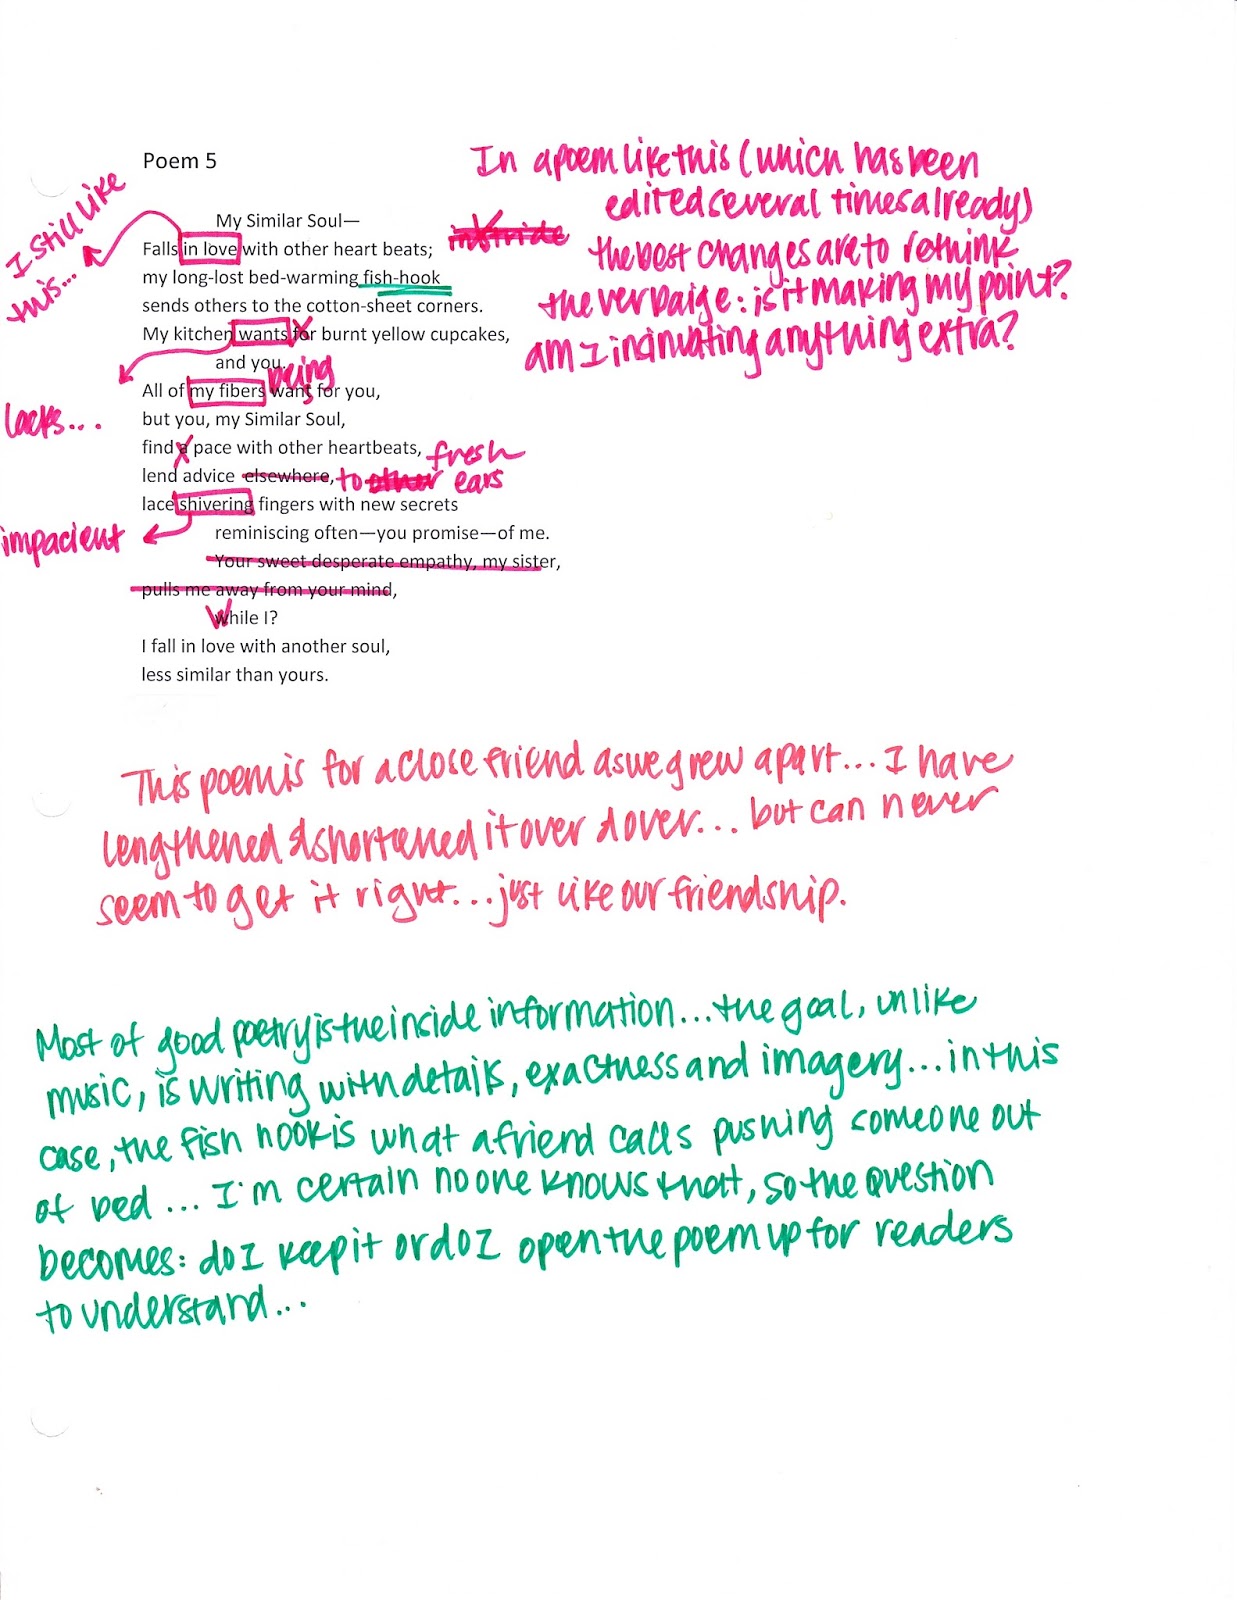 Poem 5
My Similar Soul—
Falls in love with other heart beats;
my long-lost bed-warming fish-hook
sends others to the cotton-sheet corners.
My kitchen wants for burnt yellow cupcakes,
and you.
All of my fibers want for you,
but you, my Similar Soul,
find a pace with other heartbeats,
lend advice elsewhere,
lace shivering fingers with new secrets
reminiscing often—you promise—of me.
Your sweet desperate empathy, my sister,
pulls me away from your mind,
while I?
I fall in love with another soul,
less similar than yours.
I still like
this...
lacks...
being
fresh
to other ears
impacient
W
In a poem like this (which has been
edited several times already)
the best changes are to rethink
the verbaige: is it making my point?
am I incinuating anything extra?
This poem is for a close friend as we grew apart... I have
lengthened & shortened it over & over... but can never
seem to get it right... just like our friendship.
Most of good poetry is the inside information... the goal, unlike
music, is writing with details, exactness and imagery... in this
case, the fish hook is what a friend calls pushing someone out
of bed ... I'm certain no one knows that, so the question
becomes: do I keep it or do I open the poem up for readers
to understand...